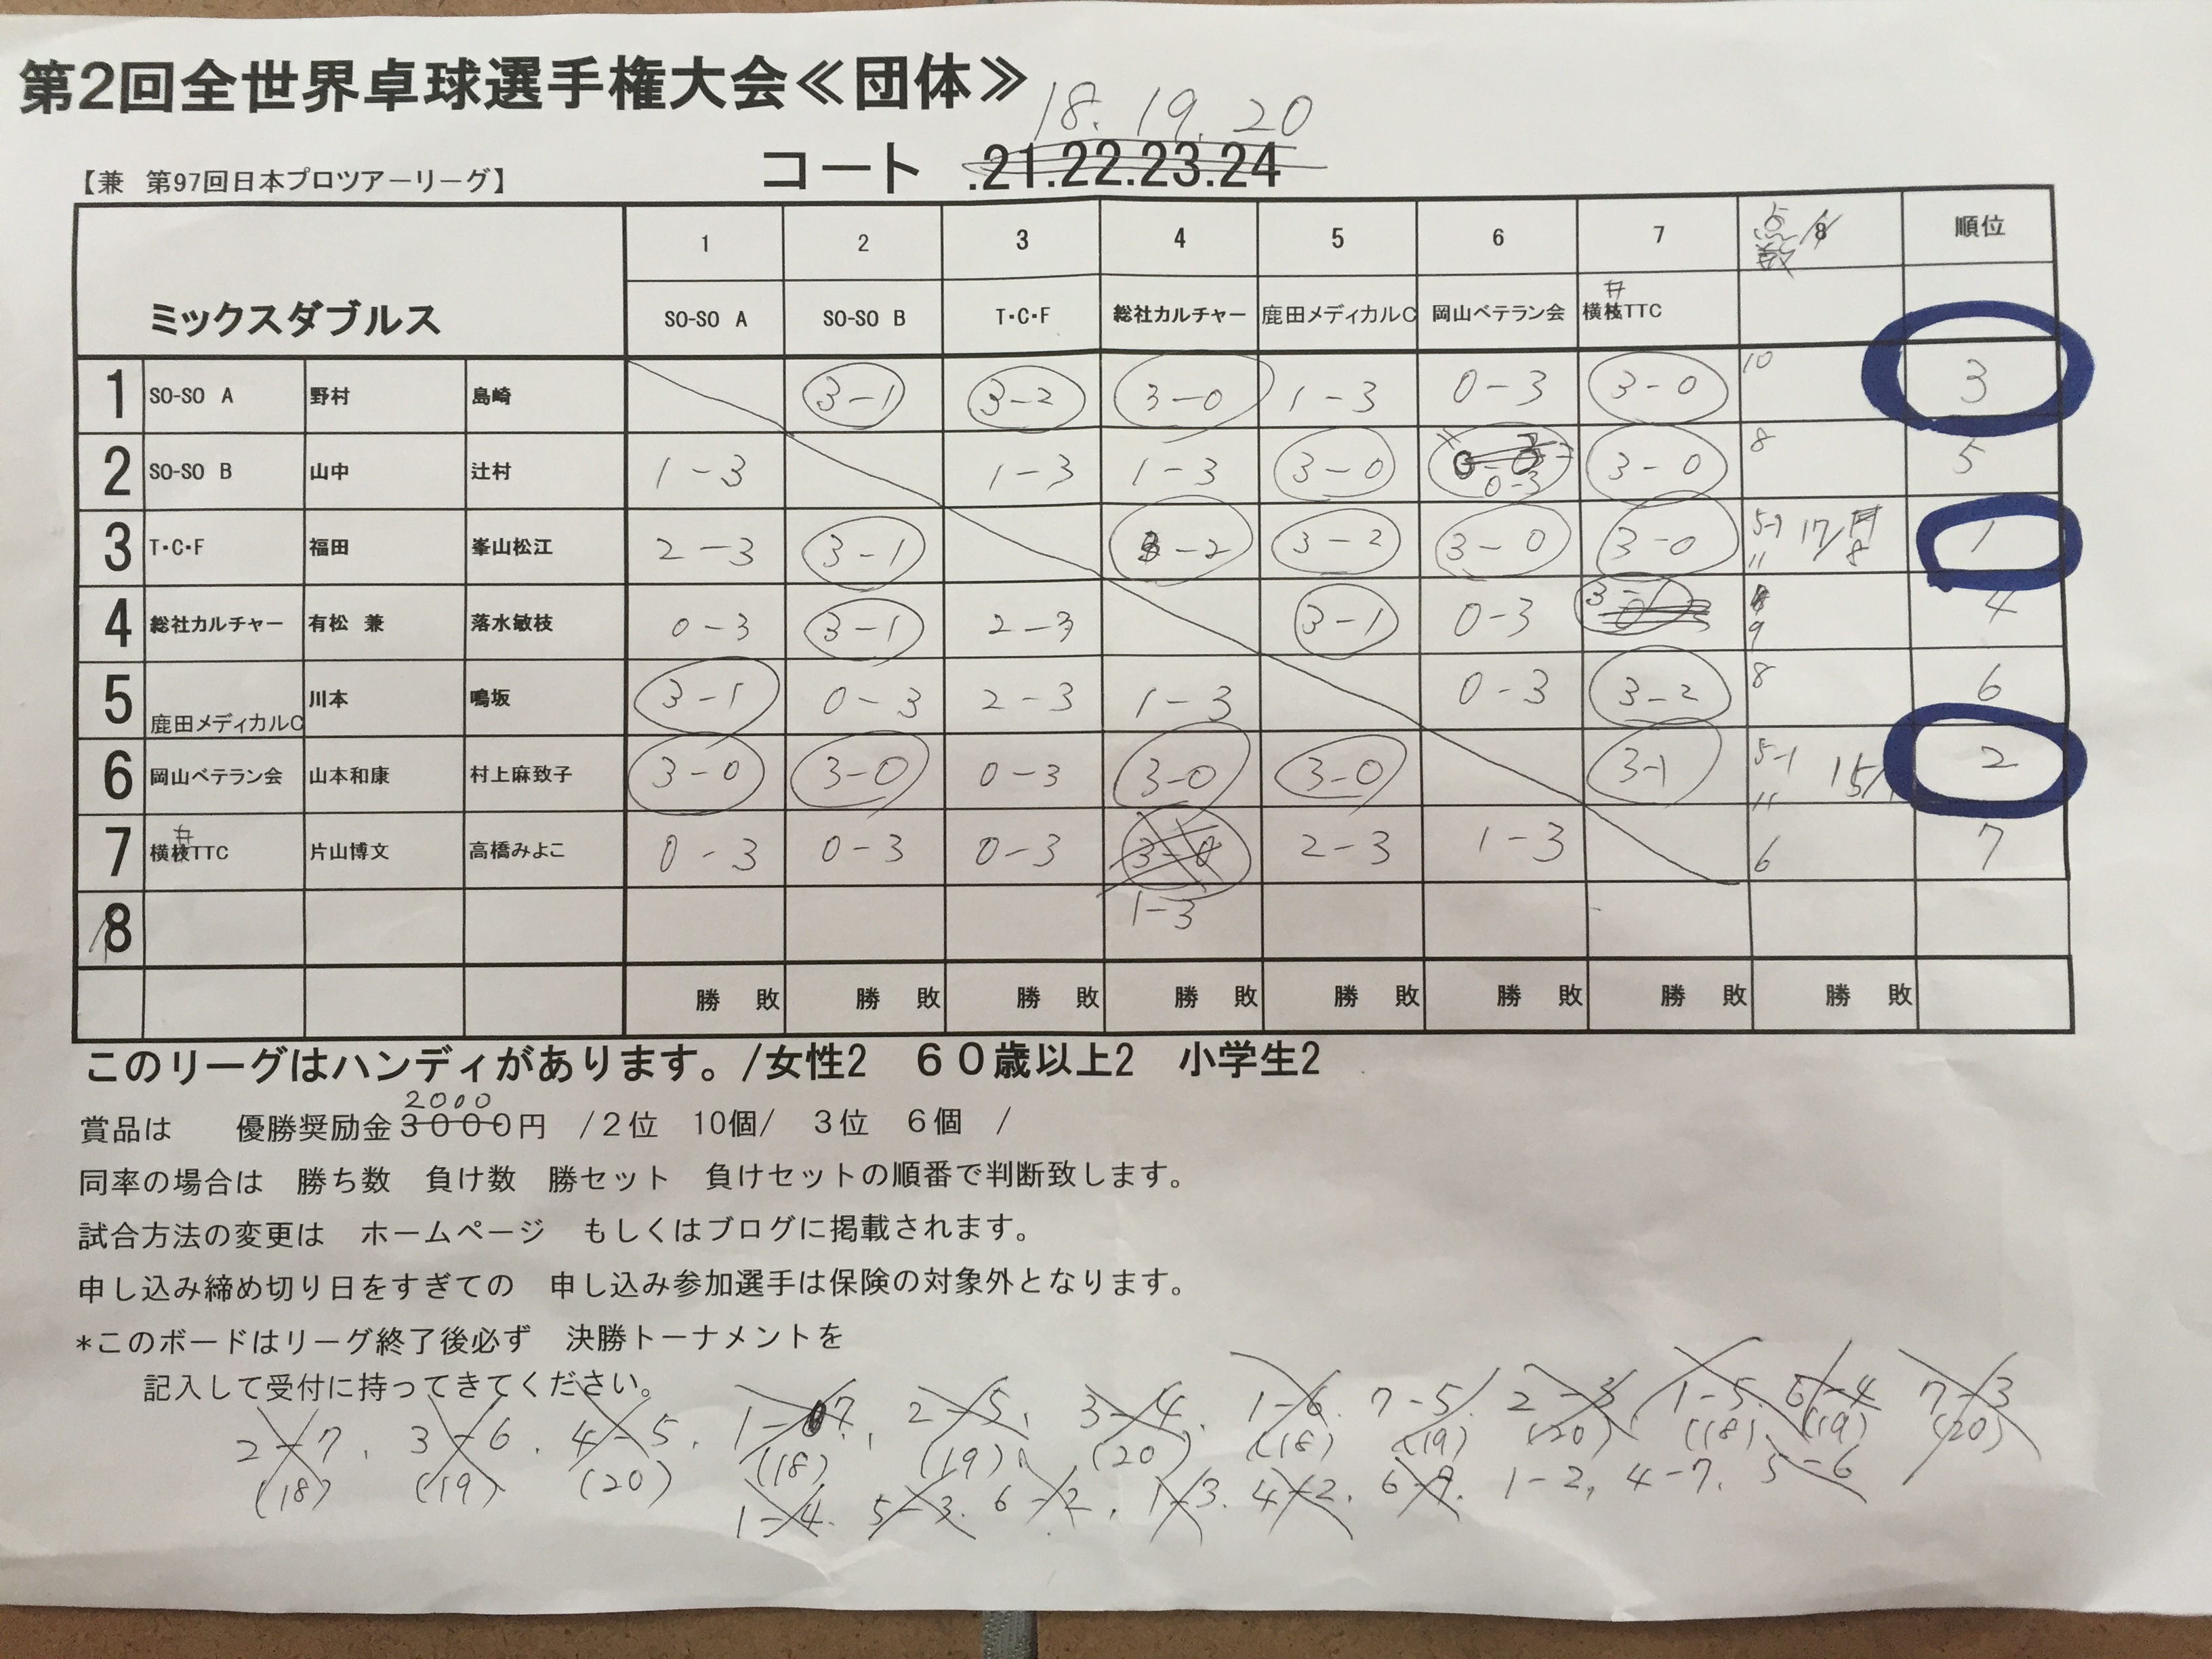 第2回全世界卓球選手権大会≪団体≫
18. 19. 20
【兼 第97回日本プロツアーリーグ】 コート .21.22.23.24
1 2 3 4 5 6 7 点数 8 順位
井
ミックスダブルス SO-SO A SO-SO B T・C・F 総社カルチャー 鹿田メディカルC 岡山ベテラン会 横枝TTC
1 SO-SO A 野村 島崎 3-1 3-2 3-0 1-3 0-3 3-0 10 3
2 SO-SO B 山中 辻村 1-3 1-3 1-3 3-0 0-3 3-0 8 5
3 T・C・F 福田 峯山松江 2-3 3-1 3-2 3-2 3-0 3-0 5-1 11 17/8 1
4 総社カルチャー 有松 兼 落水敏枝 0-3 3-1 2-3 3-1 0-3 3-1 9 4
5 鹿田メディカルC 川本 鳴坂 3-1 0-3 2-3 1-3 0-3 3-2 8 6
6 岡山ベテラン会 山本和康 村上麻致子 3-0 3-0 0-3 3-0 3-0 3-1 5-1 11 15/ 2
井
7 横枝TTC 片山博文 高橋みよこ 0-3 0-3 0-3 3-0 2-3 1-3 6 7
8 1-3
勝 敗 勝 敗 勝 敗 勝 敗 勝 敗 勝 敗 勝 敗 勝 敗
このリーグはハンディがあります。/女性2 60歳以上2 小学生2
2000
賞品は 優勝奨励金3000円 /2位 10個/ 3位 6個 /
同率の場合は 勝ち数 負け数 勝セット 負けセットの順番で判断致します。
試合方法の変更は ホームページ もしくはブログに掲載されます。
申し込み締め切り日をすぎての 申し込み参加選手は保険の対象外となります。
*このボードはリーグ終了後必ず 決勝トーナメントを
記入して受付に持ってきてください。
2-7, 3-6, 4-5, 1-7, 2-5, 3-4, 1-6, 7-5, 2-3, 1-5, 6-4, 7-3
(18) (19) (20) (18) (19) (20) (18) (19) (20) (18) (19) (20)
1-4, 5-3, 6-2, 1-3, 4-2, 6-7, 1-2, 4-7, 5-6